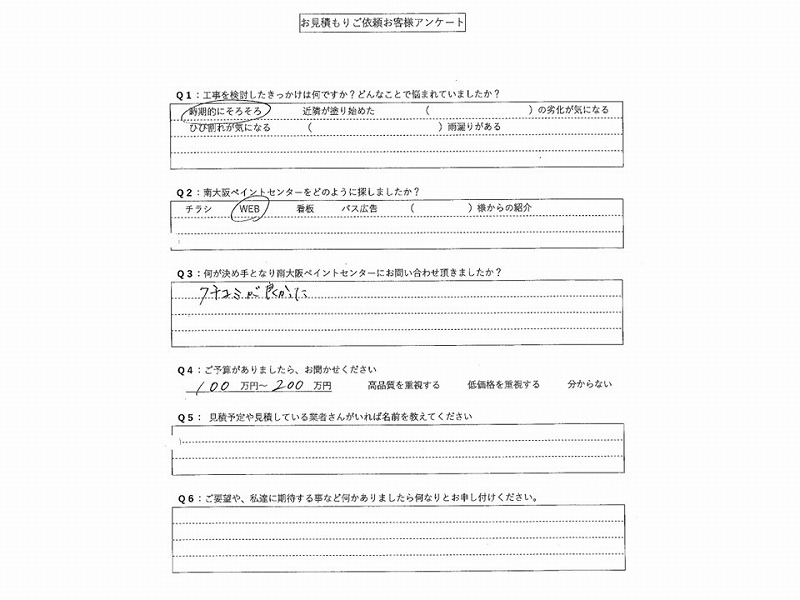 お見積もりご依頼お客様アンケート
Q1：工事を検討したきっかけは何ですか？どんなことで悩まれていましたか？
時期的にそろそろ 近隣が塗り始めた （ ）の劣化が気になる
ひび割れが気になる （ ）雨漏りがある
Q2：南大阪ペイントセンターをどのように探しましたか？
チラシ WEB 看板 バス広告 （ ）様からの紹介
Q3：何が決め手となり南大阪ペイントセンターにお問い合わせ頂きましたか？
クチコミが良かった
Q4：ご予算がありましたら、お聞かせください
100 万円～ 200 万円 高品質を重視する 低価格を重視する 分からない
Q5： 見積予定や見積している業者さんがいれば名前を教えてください
Q6：ご要望や、私達に期待する事など何かありましたら何なりとお申し付けください。